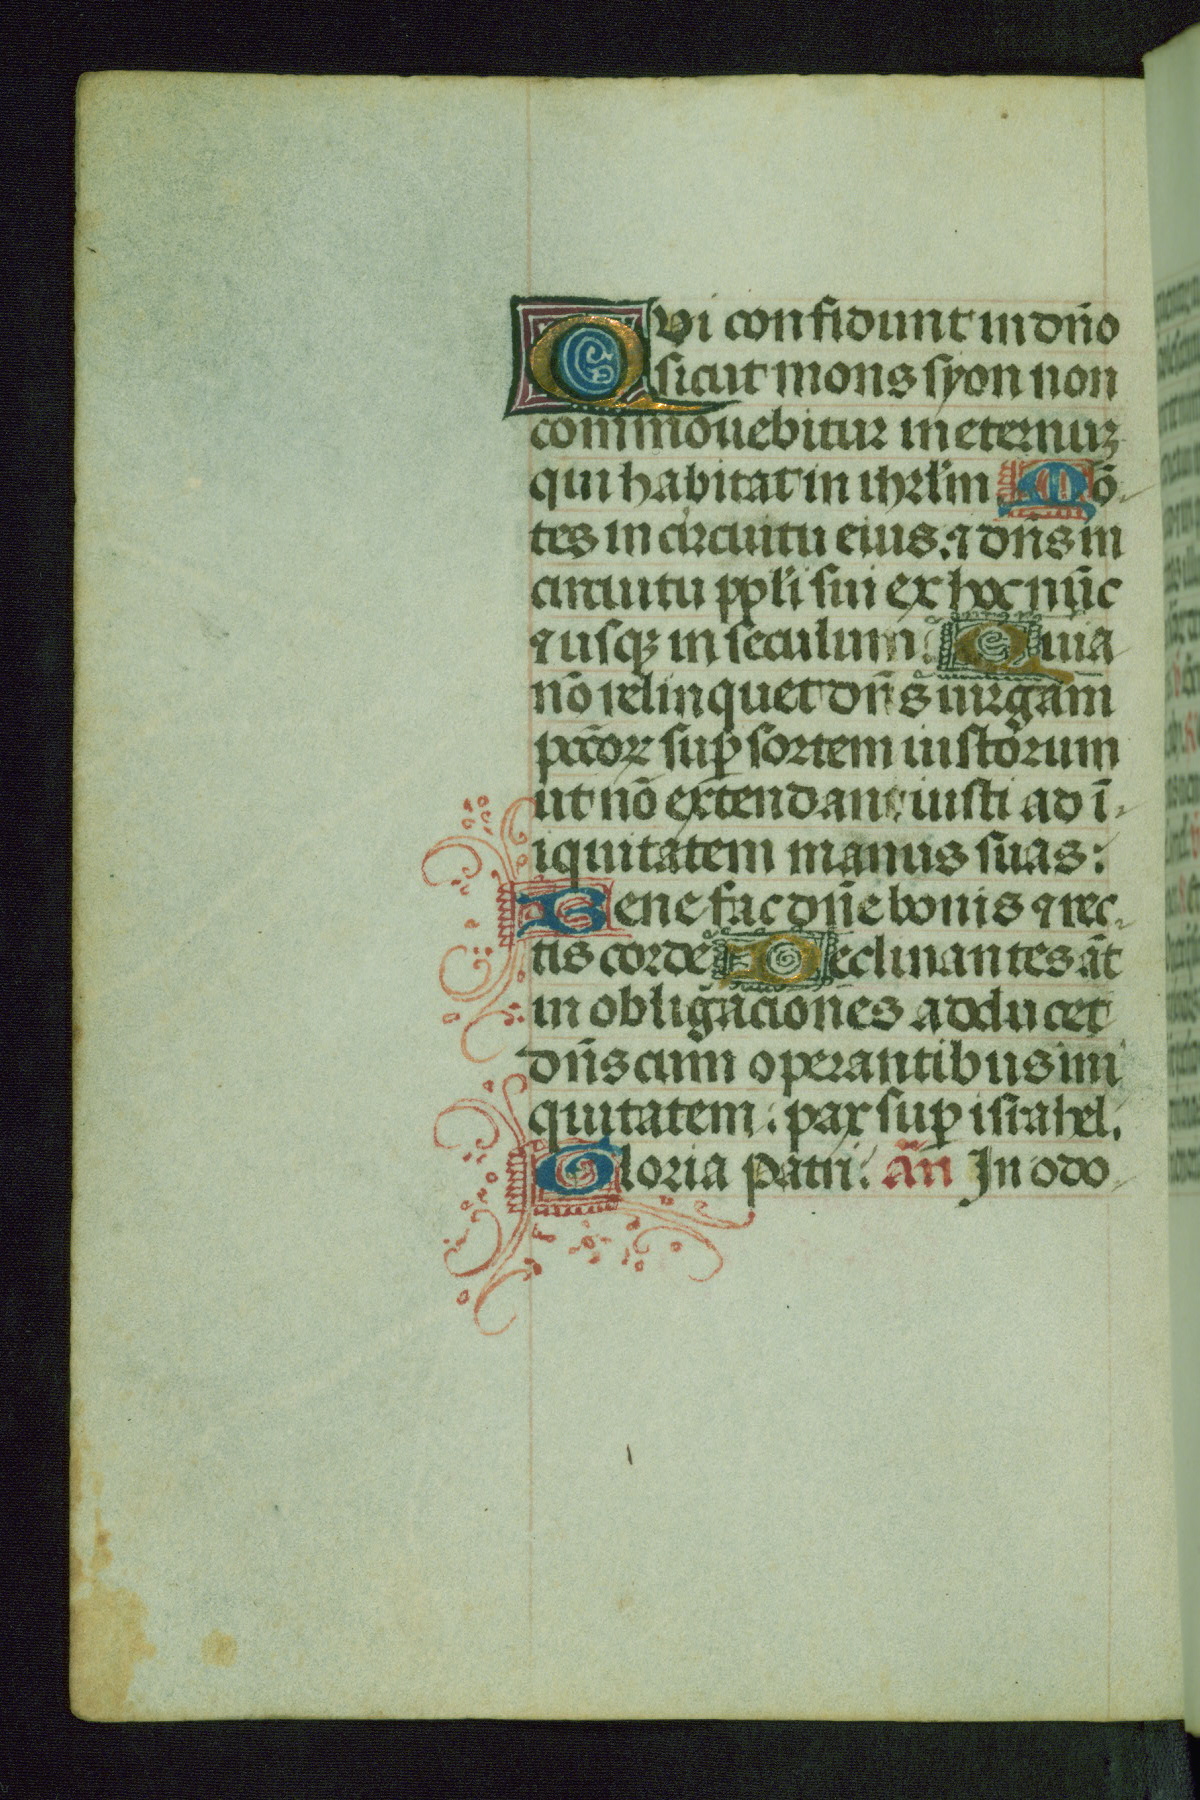 Qvi confidunt in dn̄o
sicut mons syon non
commouebitur in eternuꝫ
qui habitat in ihrłm Mō-
tes in circuitu eius: ⁊ dn̄s in
circuitu ppłi sui ex hoc nūc
⁊ usqꝫ in seculum. Quia
nō relinquet dn̄s uirgam
pc̄coꝝ suꝑ sortem iustorum
ut nō extendant iusti ad ī-
iquitatem manus suas:
Bene fac dn̄e bonis ⁊ rec-
tis corde Declinantes āt
in obligaciones adducet
dn̄s cum operantibus ini
quitatem: pax suꝑ israhel.
Gloria patri: an̄ In odo